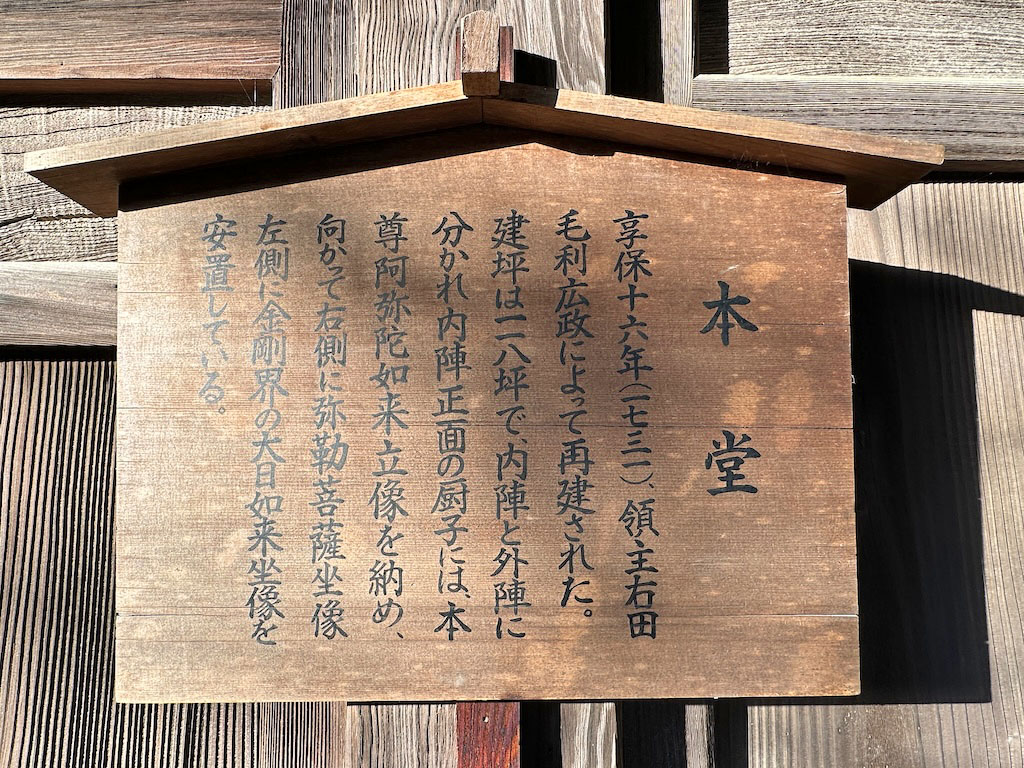 本堂
享保十六年(一七三一)、領主右田
毛利広政によって再建された。
建坪は二八坪で、内陣と外陣に
分かれ内陣正面の厨子には、本
尊阿弥陀如来立像を納め、
向かって右側に弥勒菩薩坐像
左側に金剛界の大日如来坐像を
安置している。